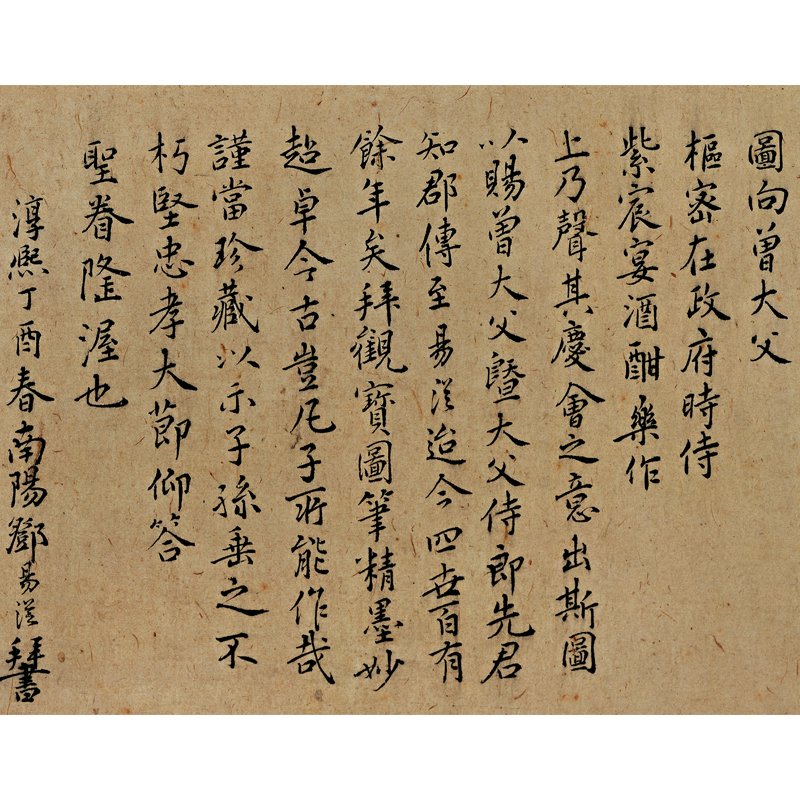 圖向曾大父
樞密在政府時侍
紫宸宴酒酣樂作
上乃聲其慶會之意出斯圖
以賜曾大父暨大父侍郎先君
知郡傳至易從迨今四世百有
餘年矣拜觀寶圖筆精墨妙
超卓今古豈凡子所能作哉
謹當珍藏以示子孫垂之不
朽堅忠孝大節仰答
聖眷隆渥也
淳熙丁酉春南陽鄧易從拜書